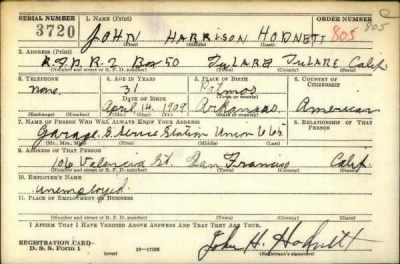 SERIAL NUMBER 1. NAME (Print)
3720 JOHN HARRISON HODNETT 805 805
(First) (Middle) (Last)
2. ADDRESS (Print)
R.F.D. R-2 Box 50 TULARE TULARE Calif.
(Number and street or R. F. D. number) (Town) (County) (State)
3. TELEPHONE 4. AGE IN YEARS 5. PLACE OF BIRTH 6. COUNTRY OF CITIZENSHIP
none. 31
DATE OF BIRTH
April 14. 1909 Arkansas American
(Exchange) (Number) (Mo.) (Day) (Yr.) (State or country)
7. NAME OF PERSON WHO WILL ALWAYS KNOW YOUR ADDRESS 8. RELATIONSHIP OF THAT PERSON
Garage & Service Station Union 665
(Mr., Mrs., Miss) (First) (Middle) (Last)
9. ADDRESS OF THAT PERSON
106 Valencia St. San Francisco Calif
(Number and street or R. F. D. number) (Town) (County) (State)
10. EMPLOYER'S NAME
Unemployed.
11. PLACE OF EMPLOYMENT OR BUSINESS
(Number and street or R. F. D. number) (Town) (County) (State)
I AFFIRM THAT I HAVE VERIFIED ABOVE ANSWERS AND THAT THEY ARE TRUE.
REGISTRATION CARD
D. S. S. Form 1 John H. Hodnett
(Registrant's signature)